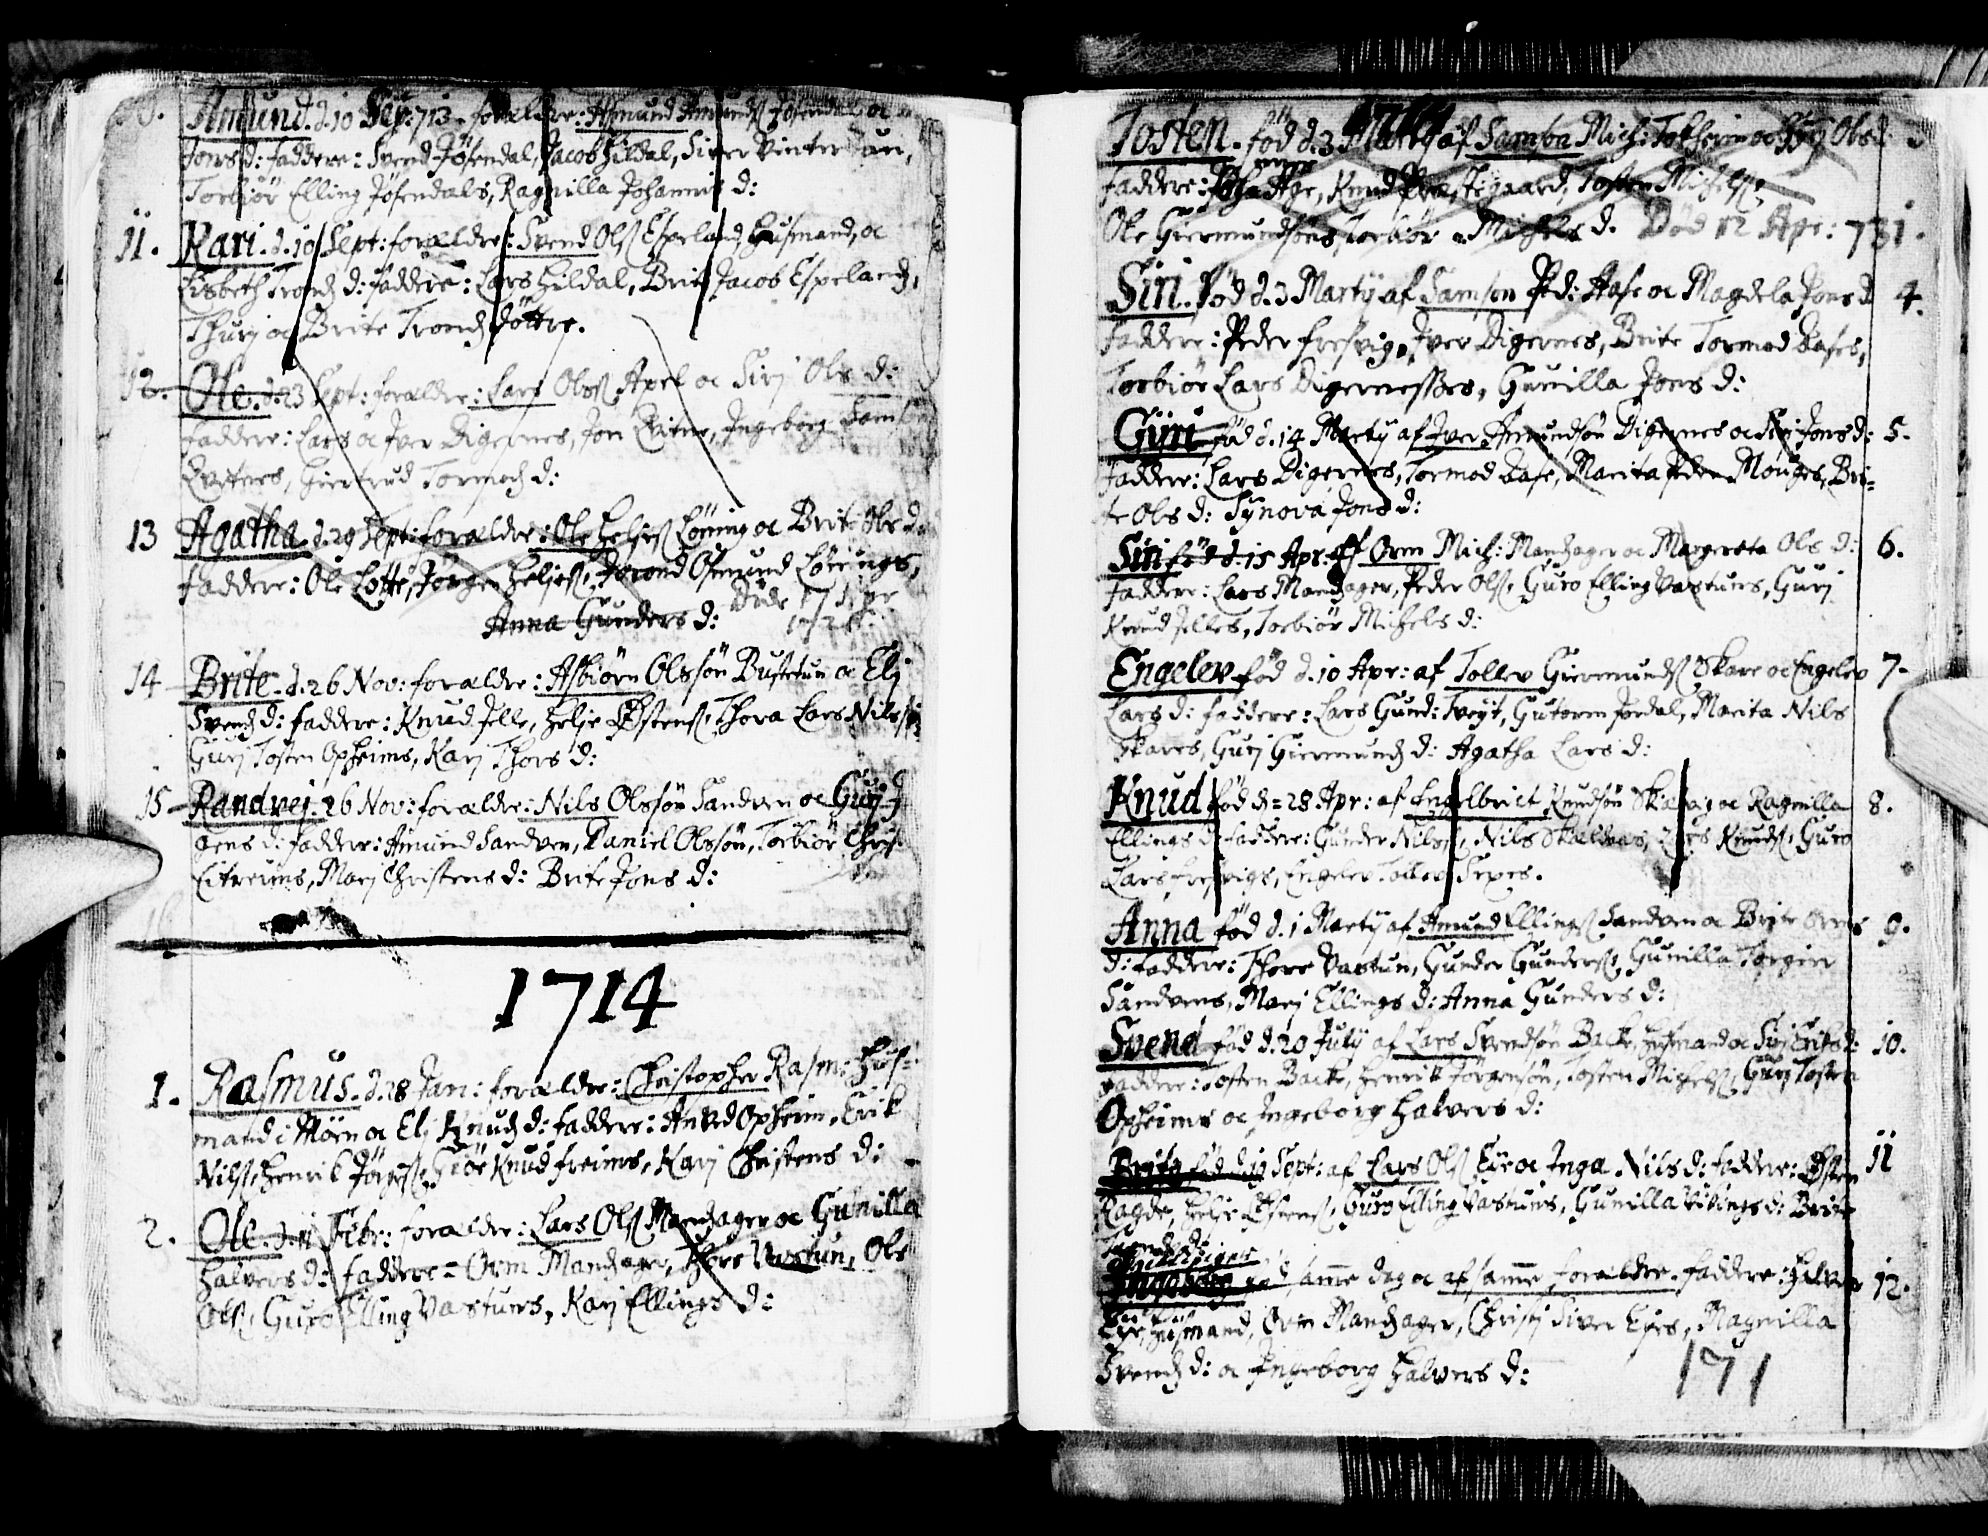 Amund. d. 10 Sep: 713. forældre: Asmund Amunds Jösendal oc
Jons d: faddere: Svend Jösendal, Jacob Hildal, Siver Vintertun,
Torbiör Elling Jösendals, Ragnilla Johannis d:
11. Kari. d. 10 Sept: forældre: Svend Ols Espeland Husmand, oc
Lisbeth Trond d: faddere: Lars Hildal, Brite Jacob Espeland,
Thurj oc Brite Trond döttre.
12. Ole. d. 23 Sept: forældre: Lars Ols Apel oc Sirj Ols d:
faddere: Lars oc Iver Digernes, Jon Qvitne, Ingeborg Sam
Qvitnes, Giertrud Tormod d:
13 Agatha. d. 29 Sept: forældre: Ole Heljes Löning oc Brite Ole d:
faddere: Ole Lotte, Jörgen Heljes, Jorond Osmund Lönings,
Anna Gunders d: Döde 17 Apr
14 Brite. d. 26 Nov: forældre: Asbiörn Olssön Bustetun oc Elj
Svend d: faddere: Knud Jelle, Helje Östens, Thora Lars Nils
Gurj Tosten Opheims, Karj Thors d:
15 Randvej. 26 Nov: forældre: Nils Olssön Sandven oc Gurj J
gens d: faddere: Amund Sandven, Daniel Olssön, Torbiör Chris
Eitreims, Marj Christens d: Brite Jons d:
1714
1. Rasmus. d. 28 Jan: forældre: Christopher Rasm: Hus-
mand i Mörn oc Elj Knud d: faddere: Anved Opheim, Erik
Nils, Henrik Jörgs, Giör Knud freims, Karj Christens d:
2. Ole. d. 11 Febr: forældre: Lars Ols Mandager oc Gunilla
Halvers d: faddere = Orm Mandager, Thore Vastun, Ols
Ols, Guro Elling Vastuns, Karj Ellings d:
Tosten. föd d. 3 Martij af Samson Mich: Tokheim oc Gurj Ols d:
faddere: Age, Knud Prestegaard, Tosten Michels,
Ole Giermundsöns, Torbiör Michels d. Död 12 Apr: 731.
Siri. föd d. 3 Martij af Samson Ped: Hase oc Magdela Jons d 4.
faddere: Peder fresvig, Iver Digernes, Brite Tormod Hases,
Torbiör Lars Digernesses, Gunilla Jons d:
Guri föd d. 14 Martij af Iver Amundsön Digernes oc Jons d: 5.
faddere: Lars Digernes, Tormod Hase, Marita Peder Mouges, Bri-
te Ols d: Synova Jons d:
Siri föd d. 15 Apr: af Orm Mich: Mandager oc Margreta Ols d: 6.
faddere: Lars Mandager, Peder Ols, Guro Elling Vastuns, Gurj
Knud Jelles, Torbiör Michels d:
Engelev föd d. 10 Apr: af Tollev Giermunds Skare oc Engelev 7.
Lars d: faddere: Lars Gund: Tveyt, Gutorm Jordal, Marita Nils
Skares, Gurj Giermund d: Agatha Lars d:
Knud föd d = 28 Apr: af Engelbrict Knudsön oc Ragnilla 8.
Ellings d faddere: Gunder Nils, Nils Skieldvas, Knuds, Guro
Lars fresvigs, Engelev Tollev Sepes.
Anna föd d. 1 Martij af Amund Ellings Sandven oc Brite Orms 9.
d: faddere: Thore Vastun, Gunder Gunders, Gunilla Torgier
Sandvens, Marj Ellings d: Anna Gunders d:
Svend föd d. 20 July af Lars Svendsön Backe, Husmand oc Erik d: 10.
faddere: Tosten Backe, Henrik Jörgensön, Tosten Michels, Gurj Tosten
Opheims oc Ingeborg Halvers d:
Brite föd d. 19 Sept: af Lars Ols Eie oc Inga Nils d: faddere: Östen 11
Ragde, Helje Östens, Guro Elling Vastuns, Gunilla Vikings d: Brite
samme dag oc af samme forældre. faddere: Halver 12.
Husmand, Orm Mandager, Christj Siver Eies, Magnilla
Svend d: oc Ingeborg Halvers d:
171